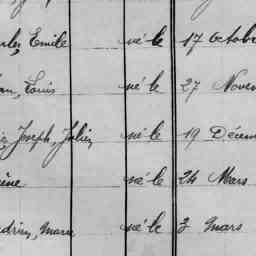 Emile né le 17 Octobr
Louis né le 27 Novem
Joseph, Julien né le 19 Décem
né le 24 Mars
Marie né le 3 Mars